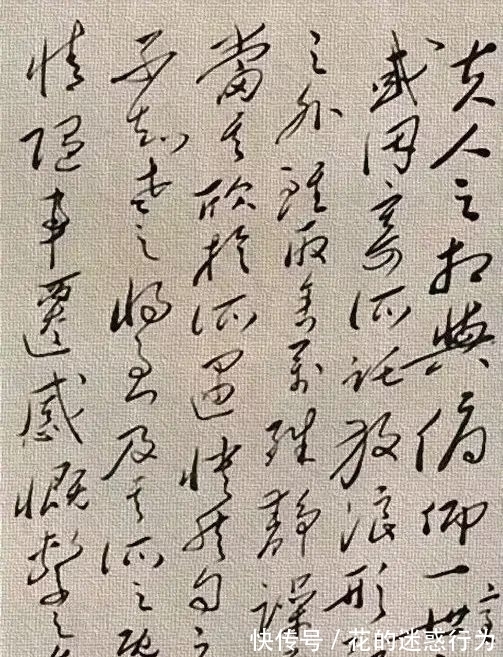 夫人之相與俯仰一世
或因寄所託放浪形
之外雖取舍萬殊靜躁
當其欣於所遇快然自足
不知老之將至及其所之既
情隨事遷感慨繫之矣
快传号 / 花的迷惑行为